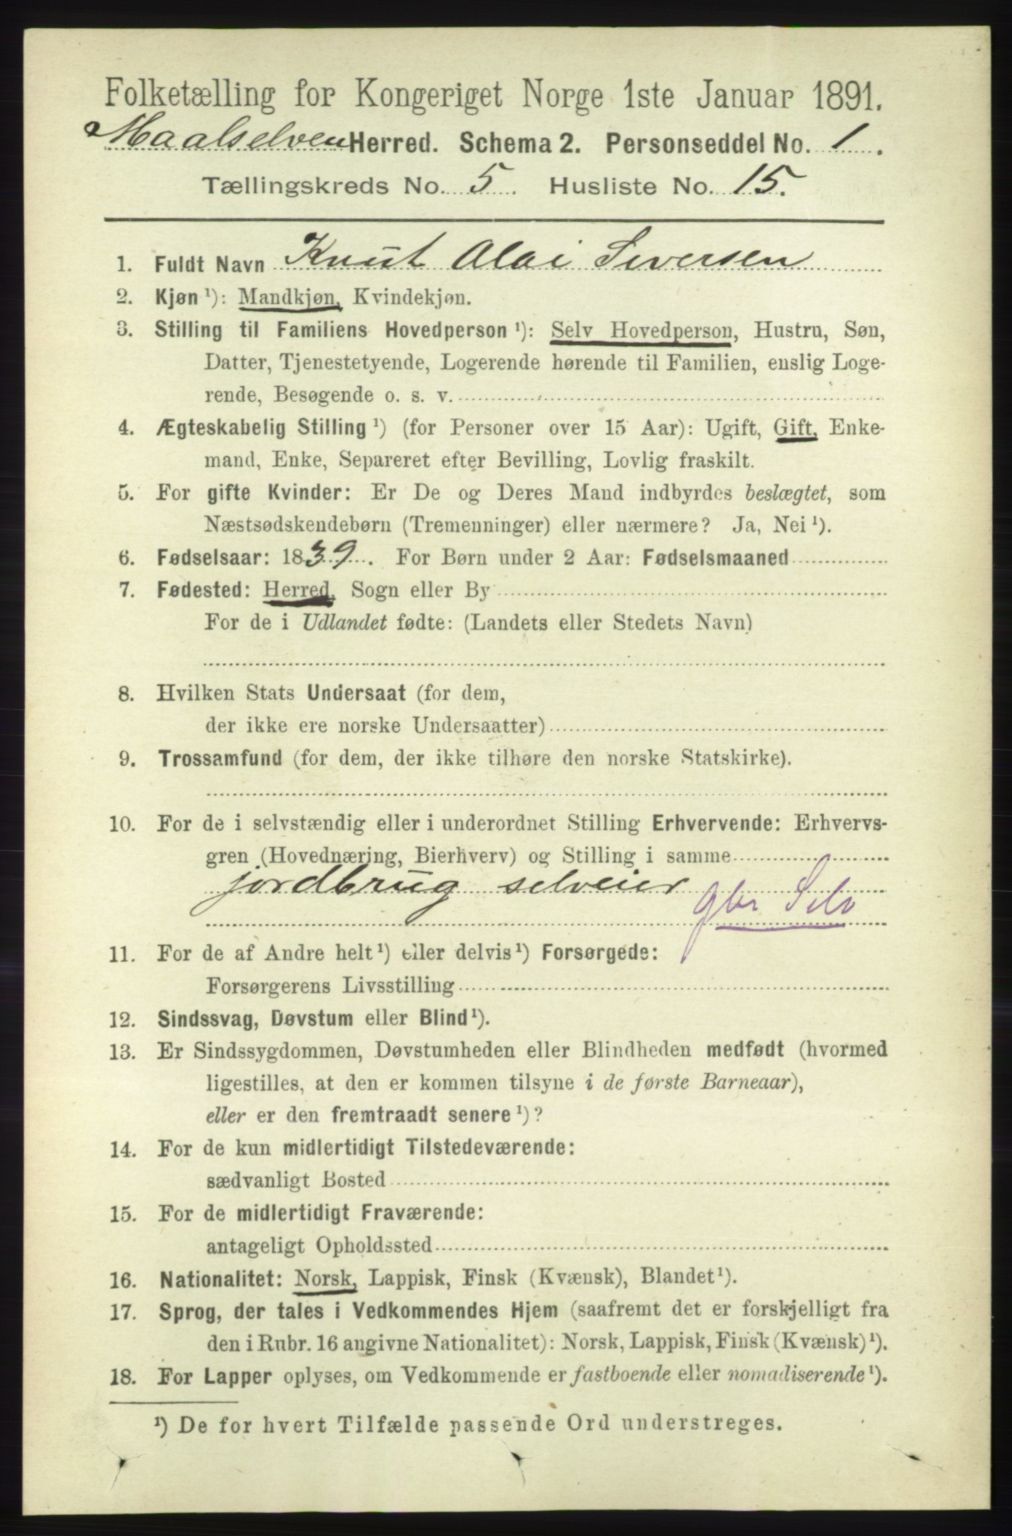 Folketælling for Kongeriget Norge 1ste Januar 1891.
Maalselven Herred. Schema 2. Personseddel No. 1.
Tællingskreds No. 5. Husliste No. 15.
1. Fuldt Navn Knut Olai Siversen
2. Kjøn ¹): Mandkjøn, Kvindekjøn.
3. Stilling til Familiens Hovedperson ¹): Selv Hovedperson, Hustru, Søn,
Datter, Tjenestetyende, Logerende hørende til Familien, enslig Loge-
rende, Besøgende o. s. v.
4. Ægteskabelig Stilling ¹) (for Personer over 15 Aar): Ugift, Gift, Enke-
mand, Enke, Separeret efter Bevilling, Lovlig fraskilt.
5. For gifte Kvinder: Er De og Deres Mand indbyrdes beslægtet, som
Næstsødskendebørn (Tremenninger) eller nærmere? Ja, Nei ¹).
6. Fødselsaar: 1839. For Børn under 2 Aar: Fødselsmaaned
7. Fødested: Herred, Sogn eller By
For de i Udlandet fødte: (Landets eller Stedets Navn)
8. Hvilken Stats Undersaat (for dem,
der ikke ere norske Undersaatter)
9. Trossamfund (for dem, der ikke tilhøre den norske Statskirke).
10. For de i selvstændig eller i underordnet Stilling Erhvervende: Erhvervs-
gren (Hovednæring, Bierhverv) og Stilling i samme
jordbrug selveier gbr Selv
11. For de af Andre helt ¹) eller delvis ¹) Forsørgede:
Forsørgerens Livsstilling
12. Sindssvag, Døvstum eller Blind ¹).
13. Er Sindssygdommen, Døvstumheden eller Blindheden medfødt (hvormed
ligestilles, at den er kommen tilsyne i de første Barneaar),
eller er den fremtraadt senere ¹)?
14. For de kun midlertidigt Tilstedeværende:
sædvanligt Bosted
15. For de midlertidigt Fraværende:
antageligt Opholdssted
16. Nationalitet: Norsk, Lappisk, Finsk (Kvænsk), Blandet ¹).
17. Sprog, der tales i Vedkommendes Hjem (saafremt det er forskjelligt fra
den i Rubr. 16 angivne Nationalitet): Norsk, Lappisk, Finsk (Kvænsk) ¹).
18. For Lapper oplyses, om Vedkommende er fastboende eller nomadiserende ¹).
¹) De for hvert Tilfælde passende Ord understreges.